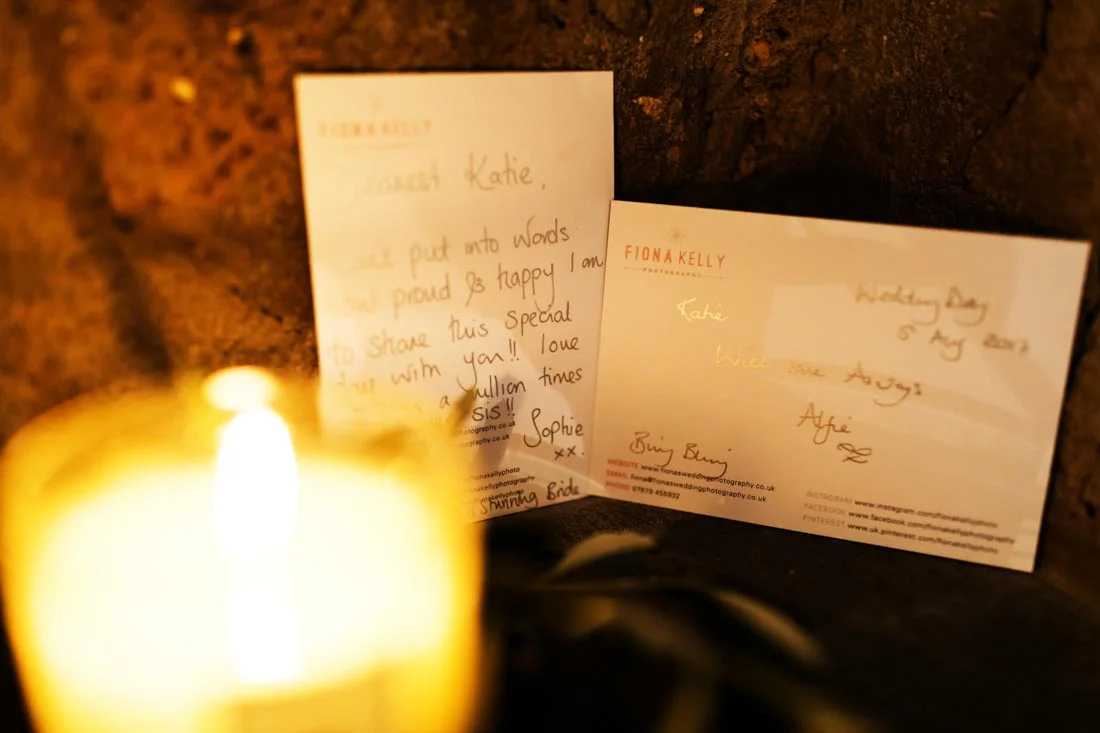 FIONA KELLY
Katie,
put into words
proud & happy I am
to share this special
day with you!! love
a million times
sis!!
Sophie
xx.
Stunning Bride
FIONA KELLY
PHOTOGRAPHY
Wedding Day
5 Aug 2017
Katie
With love Always
Alfie
WEBSITE www.fionasweddingphotography.co.uk
EMAIL fiona@fionasweddingphotography.co.uk
PHONE 07979 455932
INSTAGRAM www.instagram.com/fionakellyphoto
FACEBOOK www.facebook.com/fionakellyphotography
PINTEREST www.uk.pinterest.com/fionakellyphoto